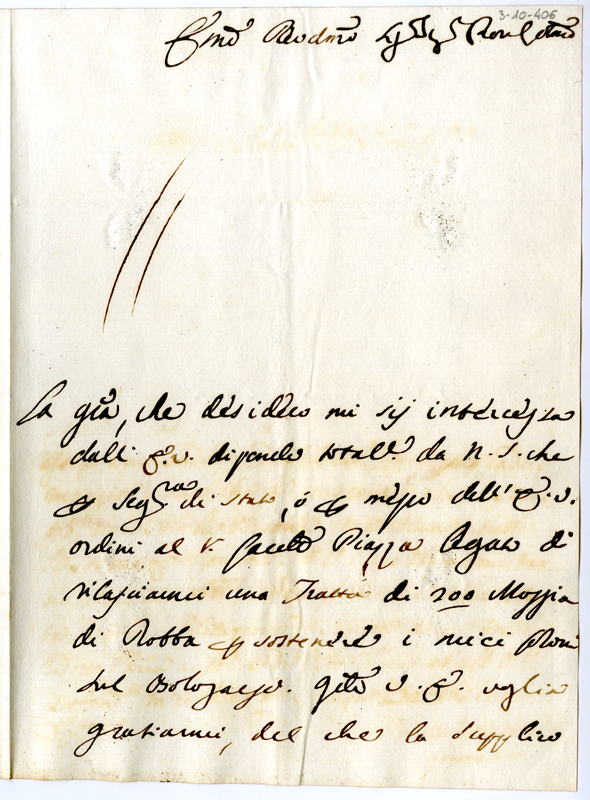 3-10-406
Emo Revdmo Sig.r Sig.r Pron Colmo
La gra, che desidero mi sij intercessa
dall' E.V. dipende totale. da N.S. che
Segria di Stato, ó mezo dell' E.V.
ordini al V. Piazza Agato di
rilasciarmi una Tratta di 200 Moggia
di Robba sostenere i miei
sul Bolognese. V.E. voglia
gratiarmi, del che la supplico